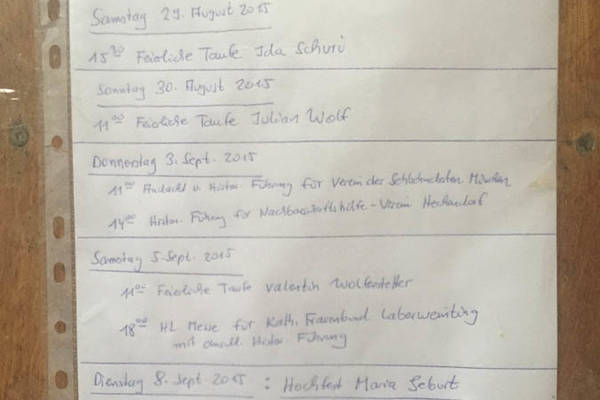 Samstag 29. August 2015
15 30 Feierliche Taufe Ida Schuri
Sonntag 30. August 2015
11 00 Feierliche Taufe Julian Wolf
Donnerstag 3. Sept. 2015
11 00 Andacht u. Histor. Führung für Verein der Schlesier München
14 00 Histor. Führung für Nachbarschaftshilfe-Verein Hechendorf
Samstag 5. Sept. 2015
11 00 Feierliche Taufe Valentin Wolfersteller
18 00 Hl. Messe für Kath. Frauenbund Laberweinting
mit anschl. Histor. Führung
Dienstag 8. Sept 2015 : Hochfest Maria Geburt